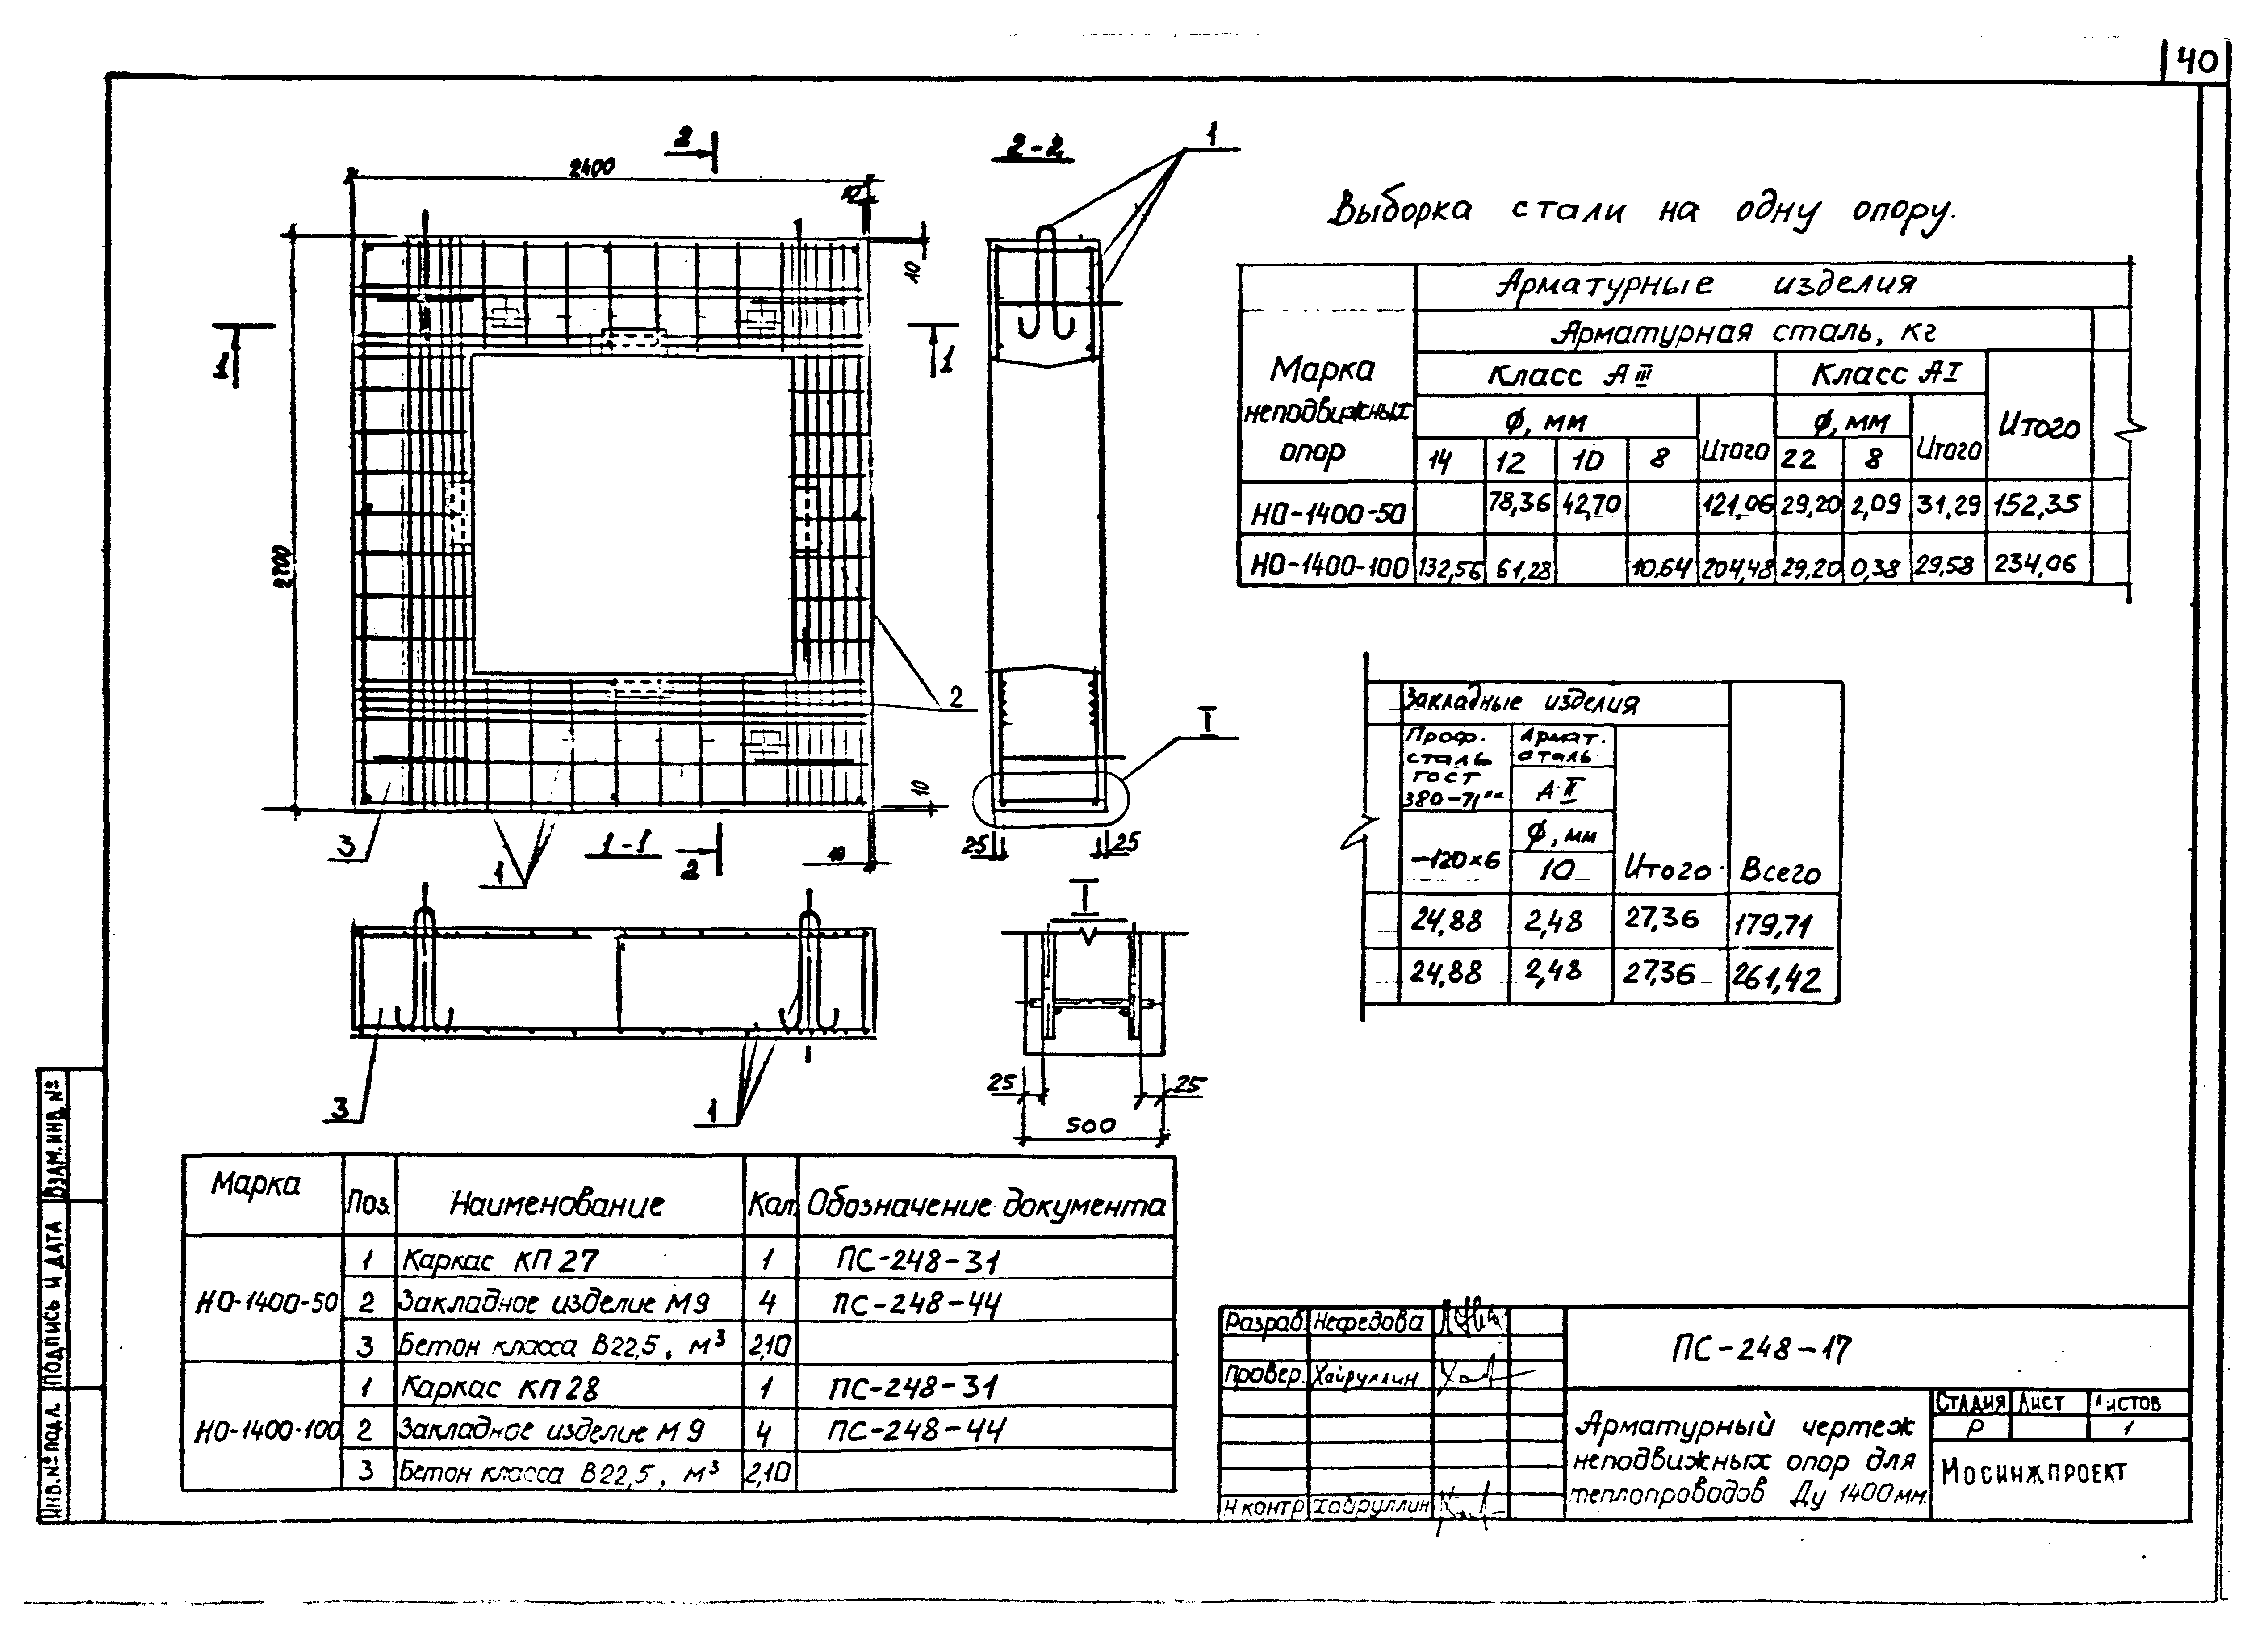 40
2
2400
10
10
1
1
2700
2
3
1
1-1
2
10
10
2-2
1
I
25
25
3
1
I
25
25
500
Выборка стали на одну опору.
Марка неподвижных опор
Арматурные изделия
Арматурная сталь, кг
Класс АIII
Класс АI
Итого
ϕ, мм
Итого
ϕ, мм
Итого
14 12 10 8 22 8
НО-1400-50 78,36 42,70 121,06 29,20 2,09 31,29 152,35
НО-1400-100 132,56 61,28 10,64 204,48 29,20 0,38 29,58 234,06
Закладные изделия
Проф. сталь ГОСТ
Армат. сталь
А-II
ϕ, мм
-120×6 10 Итого Всего
24,88 2,48 27,36 179,71
24,88 2,48 27,36 261,42
Марка Поз. Наименование Кол. Обозначение документа
НО-1400-50
1 Каркас КП 27 1 ПС-248-31
2 Закладное изделие М9 4 ПС-248-44
3 Бетон класса В22,5, м³ 2,10
НО-1400-100
1 Каркас КП 28 1 ПС-248-31
2 Закладное изделие М9 4 ПС-248-44
3 Бетон класса В22,5, м³ 2,10
Разраб. Нефедова
Провер. Хайруллин
Н контр Хайруллин
ПС-248-17
Арматурный чертеж
неподвижных опор для
теплопроводов Ду 1400мм.
Стадия Лист Листов
Р 1
Мосинжпроект
Взам. инв. №
Подпись и дата
Инв. № подл.